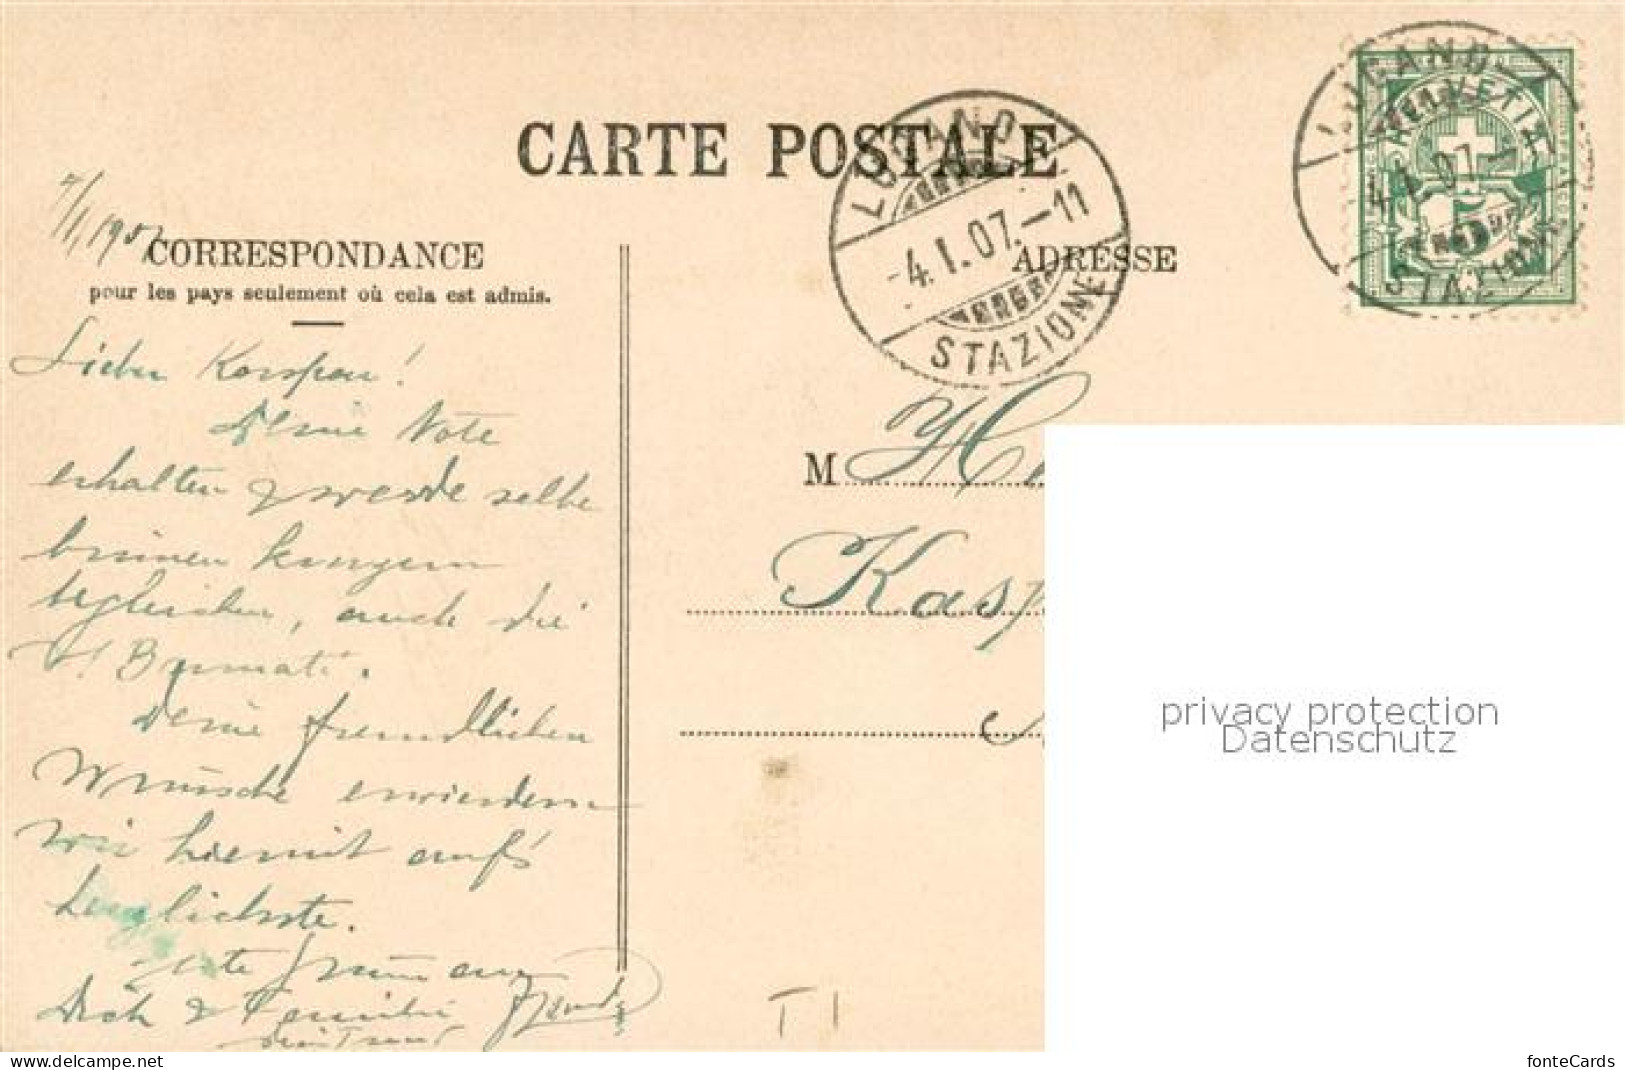 CARTE POSTALE
LUGANO
-4.I.07.-11
STAZIONE
LUGANO
HELVETIA
-4.I.07.-
5
STAZIONE
4/1.1907
CORRESPONDANCE
pour les pays seulement où cela est admis.
ADRESSE
Lieber
Deine Note
erhalten & werde selbe
begleichen, auch die
Deine freundlichen
Wünsche erwiedern
wir hiermit auf's
herzlichste.
an
Dich & Familie
M
Kasp
T I
privacy protection
Datenschutz
www.delcampe.net
fonteCards